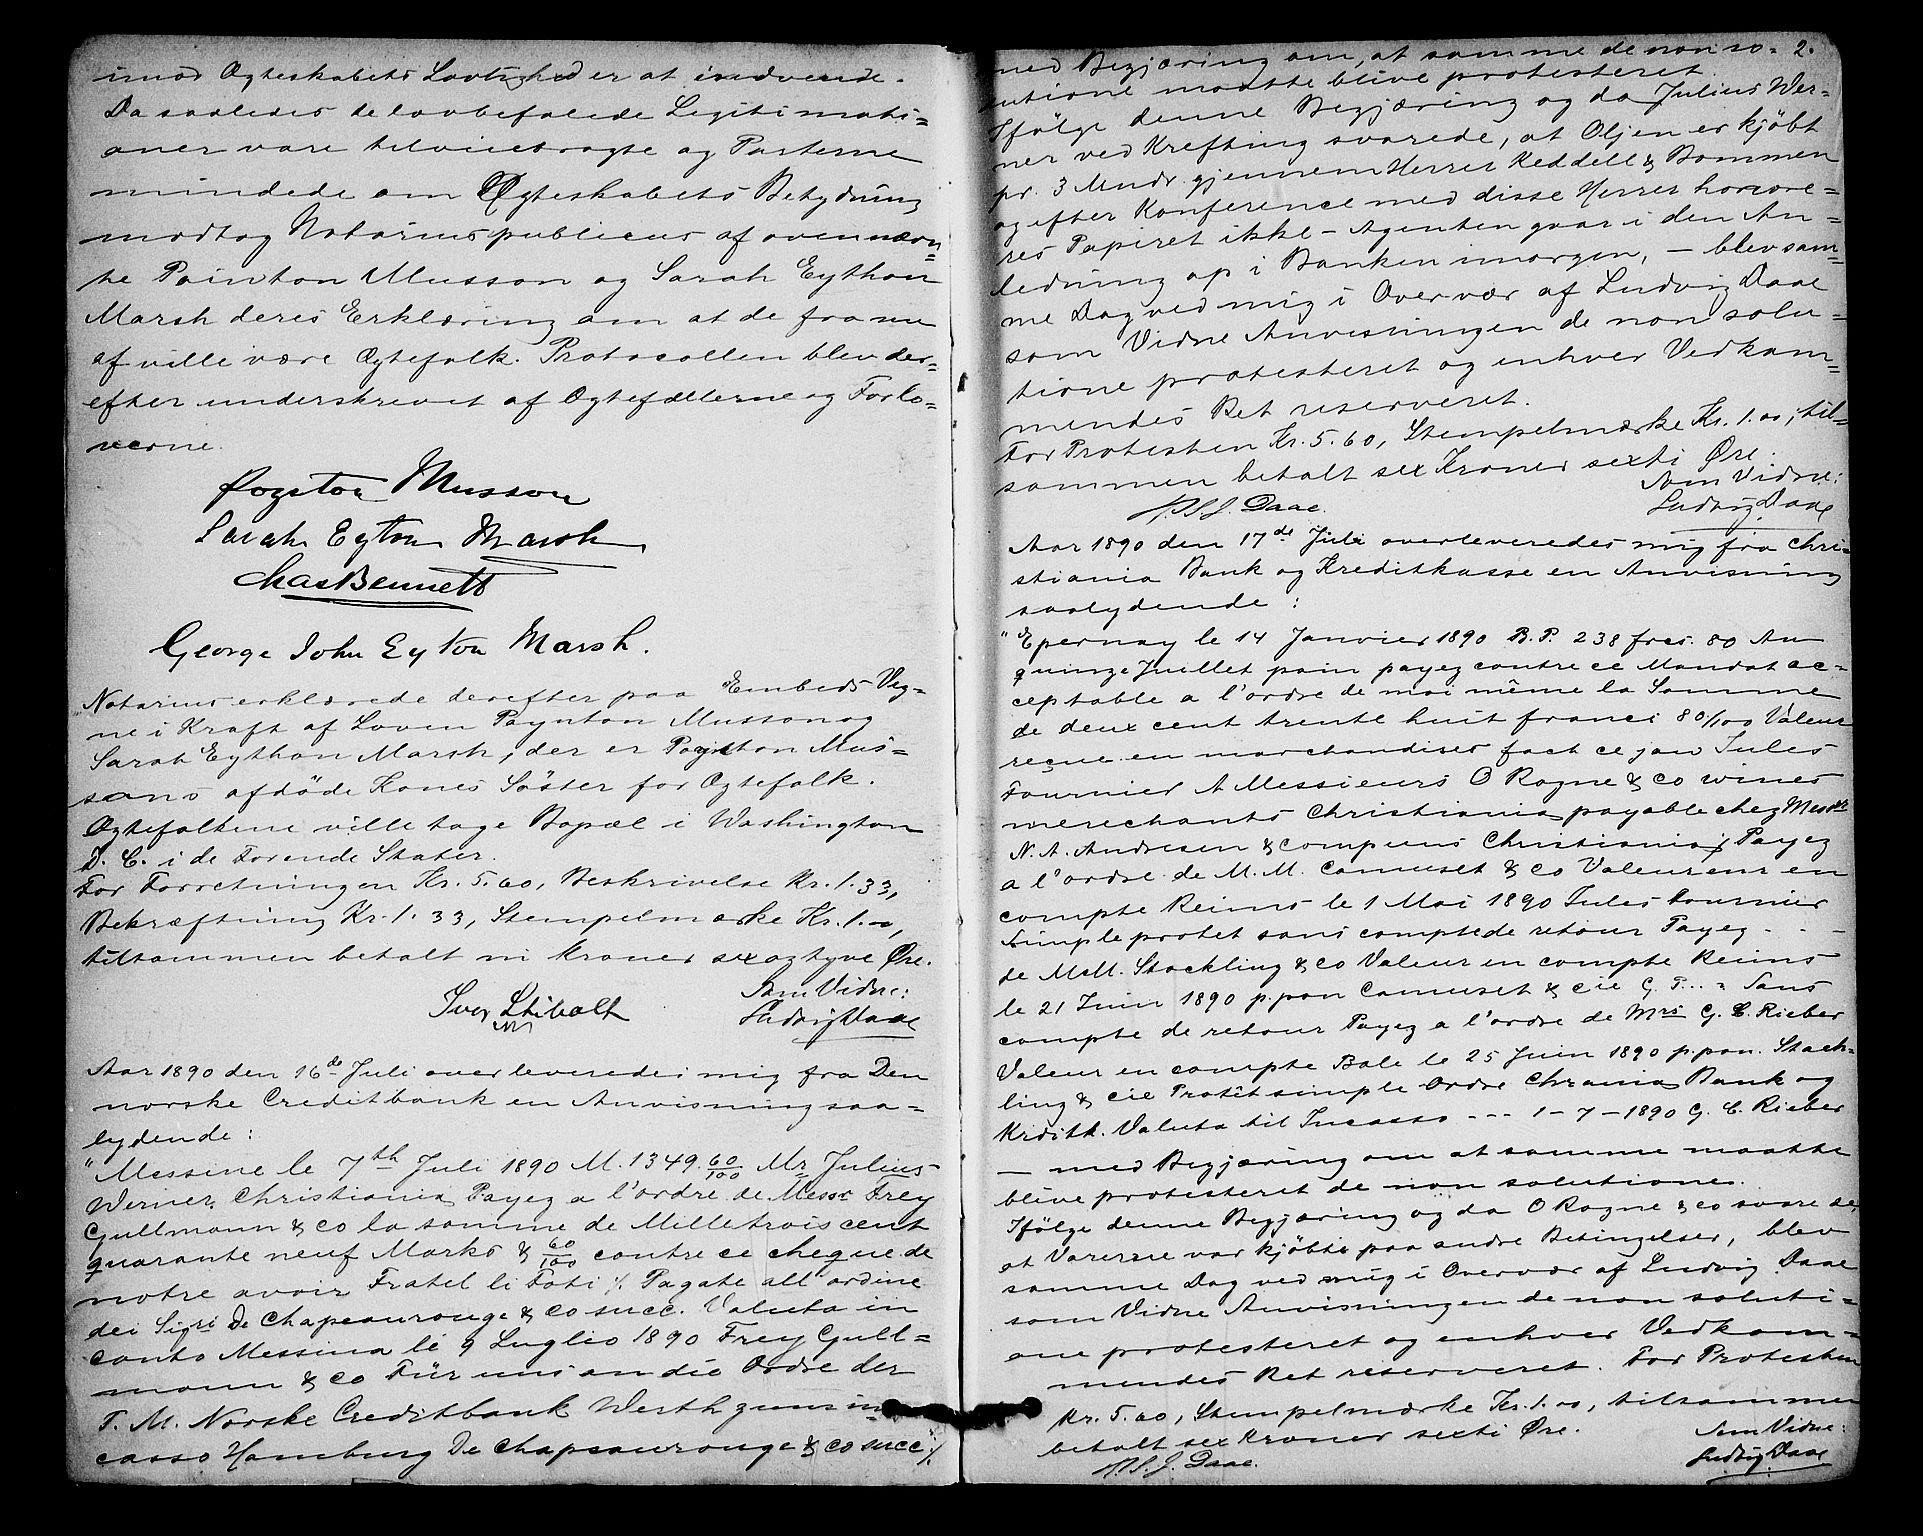 imod Ægteskabets Lovlighed er at indvende.
Da saaledes de lovbefalede Legitimati=
oner vare tilveiebragte og Parterne
mindede om Ægteskabets Betydning
modtog Notarius publicus af ovennævn=
te Pointon Musson og Sarah Eython
Marsh deres Erklæring om at de fra nu
af ville være Ægtefolk. Protocollen blev der=
efter underskrevet af Ægtefællerne og Forlo=
verne.
Poynton Musson
Sarah Eyton Marsh
Chas Bennett
George John Eyton Marsh.
Notarius erklærede derefter paa Embeds Veg=
ne i Kraft af Loven Paynton Musson og
Sarah Eython Marsh, der er Poynton Mus=
sons afdöde Kones Söster for Ægtefolk.
Ægtefolkene ville tage Bopæl i Washington
D. C. i de Forende Stater.
For Forretningen Kr. 5.60, Beskrivelse Kr. 1.33,
Bekræftning Kr. 1.33, Stempelmærke Kr. 1.00,
tilsammen betalt ni Kroner sex og tyve Øre.
Som Vidne:
Ludvig Daae
Aar 1890 den 16de Juli overleveredes mig fra Den
norske Creditbank en Anvisning saa=
lydende:
"Messine le 7th Juli 1890 M. 1349.60/100 Mr Julius
Werner, Christiania Payez a l'ordre de Messr Frey
Gullmann & Co la somme de Mille trois cent
quarante neuf Marks & 60/100 contre ce cheque de
notre avoir Fratel li Foti ·/. Pagate all'ordine
dei Sigri De Chapeaurouge & Co succ. Valuta in
conto Messina li 9 Luglio 1890 Frey Gull=
mann & Co Für uns an die Ordre der
T. M. Norske Creditbank Werth zum in=
casso Hamburg De Chapeaurouge & Co succ."/.
2.
med Begjæring om, at samme de non so=
lutione maatte blive protesteret.
Ifölge denne Begjæring og da Julius Wer=
ner ved Krefting svarede, at Oljen er kjöbt
pr. 3 Mndr. gjennem Herrer Keddell & Bommen
og efter Konference med disse Herrer honore=
res Papiret ikke – Agenten gaar i den An=
ledning op i Banken imorgen, – blev sam=
me Dag ved mig i Overvær af Ludvig Daae
som Vidne Anvisningen de non solu=
tione protesteret og enhver Vedkom=
mendes Ret reserveret.
For Protesten Kr. 5.60, Stempelmærke Kr. 1.00, til=
sammen betalt sex Kroner sexti Øre.
Som Vidne:
Daae. Ludvig Daae
Aar 1890 den 17de Juli overleveredes mig fra Chri=
stiania Bank og Kreditkasse en Anvisning
saalydende:
"Epernay le 14 Janvier 1890 B. P. 238 frcs. 80 Au
quinze Juillet pain payez contre ce Mandat ac=
ceptable a l'ordre de moi même la Somme
de deux cent trente huit francs 80/100 Valeur
reçue en marchandises fact ce jour Jules
Fournier A Messieurs O Rogne & Co wines
merechants Christiania payable chez Messrs
N. A. Andresen & compens Christiania Payez
a l'ordre de M. M. Camuset & Co Valeur en
compte Reims le 1 Mai 1890 Jules Fournier
Simple protet sans compte de retour Payez - - -
de MM. Stackling & Co Valeur en compte Reims
le 21 Juin 1890 p. pon Camuset & Cie G. P... = Sans
compte de retour Payez a l'ordre de Mrs G. C. Rieber
Valeur en compte Bale le 25 Juin 1890 p. pon. Stack=
ling & Cie Protêt simple Ordre Chrania Bank og
Krditk. Valuta til Incasso - - - 1 – 7 – 1890 G. C. Rieber
– med Begjæring om at samme maatte
blive protesteret de non solutione.
Ifölge denne Begjæring og da O Rogne & Co svarede,
at Varerne var kjöbte paa andre Betingelser, blev
samme Dag ved mig i Overvær af Ludvig Daae
som Vidne Anvisningen de non soluti=
one protesteret og enhver Vedkom=
mendes Ret reserveret. For Protesten
Kr. 5.60, Stempelmærke Kr. 1.00, tilsammen
betalt sex Kroner sexti Øre.
Som Vidne:
Daae. Ludvig Daae